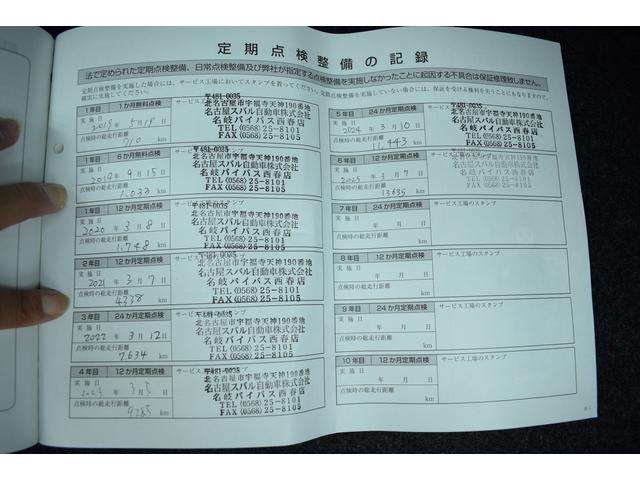 定期点検整備の記録
法で定められた定期点検整備、日常点検整備及び弊社が指定する点検整備を実施しなかったことに起因する不具合は保証修理致しません。
定期点検整備を実施した場合には、サービス工場においてスタンプを貰ってください。定期点検整備を実施していない場合には、保証を受ける権利を失うことにもなりますので、
確実に実施してください。
1年目 1か月無料点検
サービス
実施日
2019年 5月19日
点検時の総走行距離
710 km
〒481-0035
北名古屋市宇福寺天神190番地
名古屋スバル自動車株式会社
名岐バイパス西春店
TEL(0568)25-8101
FAX(0568)25-8105
1年目 6か月無料点検
サービス
実施日
2019年 9月15日
点検時の総走行距離
1,033 km
〒481-0035
北名古屋市宇福寺天神190番地
名古屋スバル自動車株式会社
名岐バイパス西春店
TEL(0568)25-8101
FAX(0568)25-8105
1年目 12か月定期点検
サービス
実施日
2020年 3月8日
点検時の総走行距離
1,748 km
〒481-0035
北名古屋市宇福寺天神190番地
名古屋スバル自動車株式会社
名岐バイパス西春店
TEL(0568)25-8101
FAX(0568)25-8105
2年目 12か月定期点検
サービス
実施日
2021年 3月7日
点検時の総走行距離
4338 km
〒481-0035
北名古屋市宇福寺天神190番地
名古屋スバル自動車株式会社
名岐バイパス西春店
TEL(0568)25-8101
FAX(0568)25-8105
3年目 24か月定期点検
サービス
実施日
2022年 3月12日
点検時の総走行距離
7,634 km
〒481-0035
北名古屋市宇福寺天神190番地
名古屋スバル自動車株式会社
名岐バイパス西春店
TEL(0568)25-8101
FAX(0568)25-8105
4年目 12か月定期点検
サービス
実施日
2023年 3月5日
点検時の総走行距離
9285 km
〒481-0035
北名古屋市宇福寺天神190番地
名古屋スバル自動車株式会社
名岐バイパス西春店
TEL(0568)25-8101
FAX(0568)25-8105
5年目 24か月定期点検
サービス
実施日
2024年 3月10日
点検時の総走行距離
11,443 km
〒481-0035
北名古屋市宇福寺天神190番地
名古屋スバル自動車株式会社
名岐バイパス西春店
TEL(0568)25-8101
FAX(0568)25-8105
6年目 12か月定期点検
サービス
実施日
2025年 3月7日
点検時の総走行距離
13635 km
〒481-0035
北名古屋市宇福寺天神190番地
名古屋スバル自動車株式会社
名岐バイパス西春店
TEL(0568)25-8101
FAX(0568)25-8105
7年目 24か月定期点検
サービス工場のスタンプ
実施日
年 月 日
点検時の総走行距離
km
8年目 12か月定期点検
サービス工場のスタンプ
実施日
年 月 日
点検時の総走行距離
km
9年目 24か月定期点検
サービス工場のスタンプ
実施日
年 月 日
点検時の総走行距離
km
10年目 12か月定期点検
サービス工場のスタンプ
実施日
年 月 日
点検時の総走行距離
km